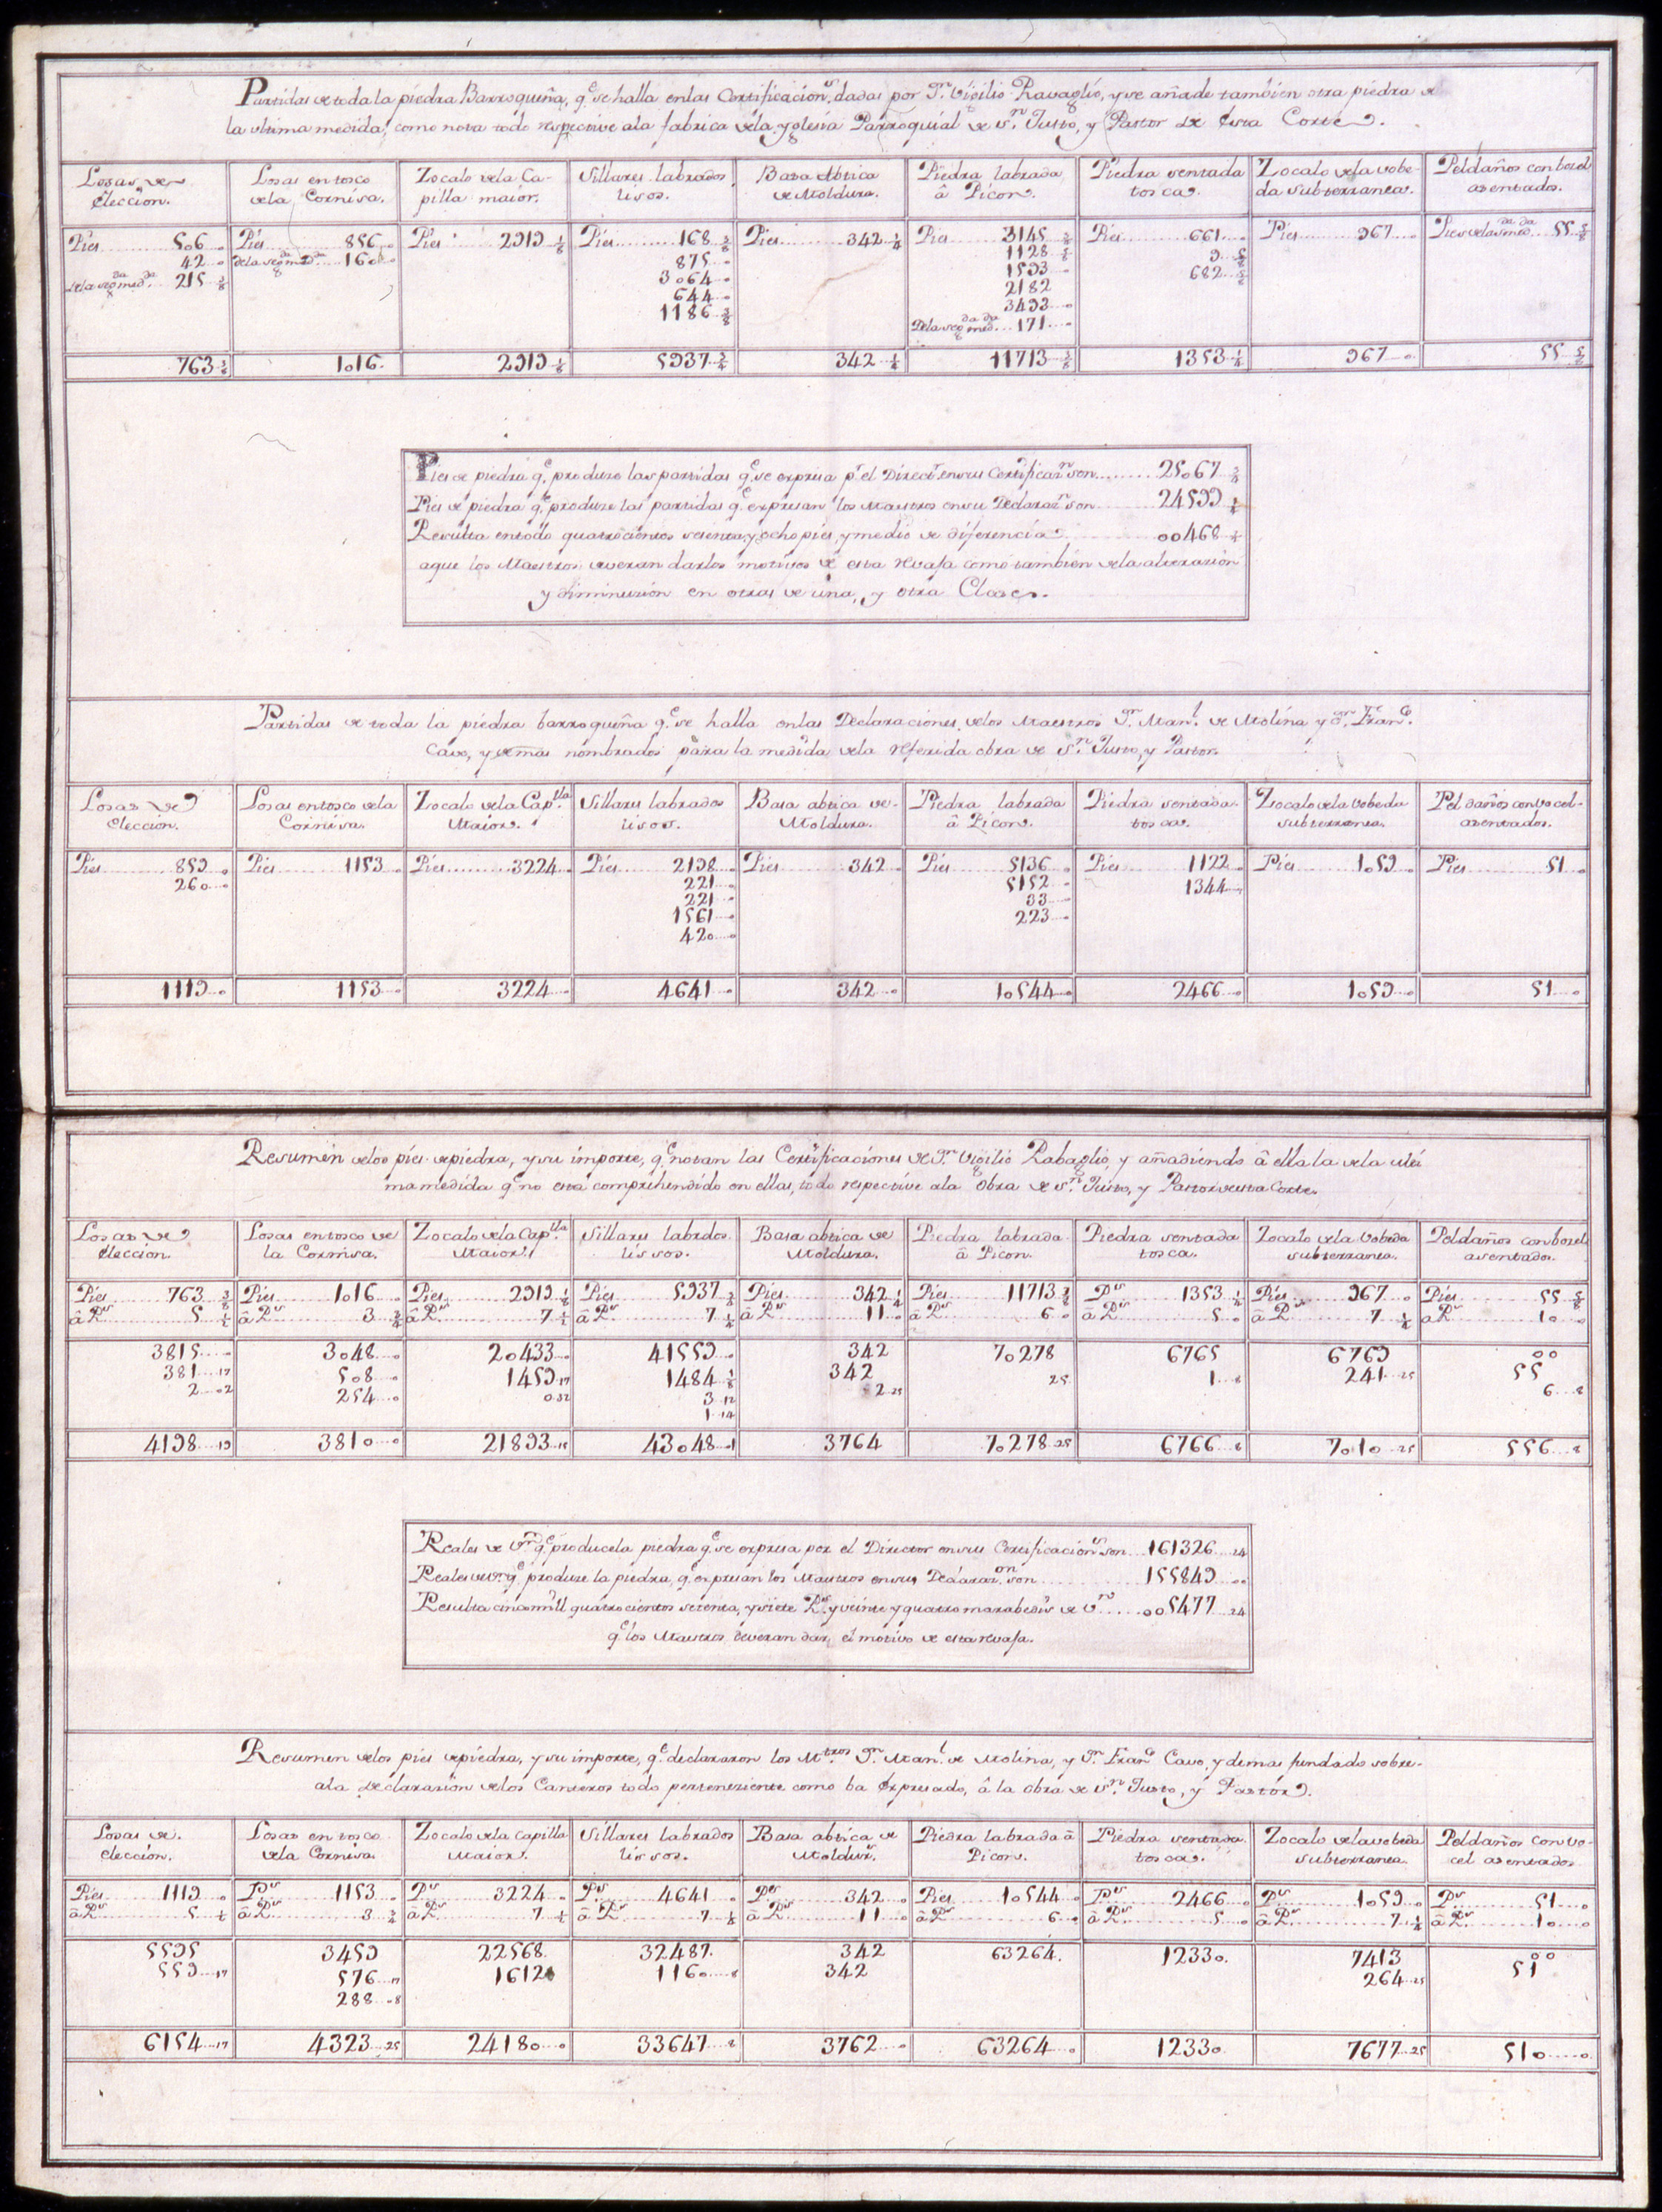 Partidas de toda la piedra Barroqueña, q.e se halla en las Certificacion.s dadas por D.n Vigilio Ravaglio, y se añade tambien otra piedra de
la ultima medida, como nota todo respective ala fabrica dela Yglesia Parroquial de S.n Justo, y Pastor de esta Corte.
Losas de Eleccion. | Losas en tosco dela Cornisa. | Zocalo dela Capilla maior. | Sillares labrados lisos. | Basa Abtica de Moldura. | Piedra labrada â Picon. | Piedra sentada tosca. | Zocalo dela vobeda subterranea. | Peldaños con bocel asentados.
Pies 506 | Pies 856 | Pies 2919 1/8 | Pies 168 3/8 | Pies 342 1/4 | Pies 3145 | Pies 661 | Pies 967 | Pies dela seg.da med.da 55 5/8
42 | dela seg.da med.da 160 | 875 | 1128 | 9
dela seg.da med.da 215 3/8 | 3064 | 1593 | 682
644 | 2182
1186 3/8 | 3493
Dela seg.da med.da 171
763 3/8 | 1016 | 2919 1/8 | 5937 3/4 | 342 1/4 | 11713 | 1353 1/4 | 967 | 55 5/8
Pies de piedra q.e produze las partidas q.e se expresa p.r el Direct.r en sus Certificaz.n son 25067
Pies de piedra q.e produze las partidas q.e expresan los Maestros en su Declaraz.n son 24599
Resulta en todo quatrocientos sesenta, y ocho pies, y medio de diferencia 00468
aque los Maestros deveran dar los motivos de esta revaja como tambien dela alterazion
y diminuzion en otras de una, y otra Clase.
Partidas de toda la piedra barroqueña q.e se halla en las Declaraciones delos Maestros D.n Man.l de Molina y D.n Fran.co
Cavo, y demas nombrados para la medida dela referida obra de S.n Justo, y Pastor.
Losas de Eleccion. | Losas en tosco dela Cornisa. | Zocalo dela Cap.lla Maior. | Sillares labrados lisos. | Basa abtica de Moldura. | Piedra labrada â Picon. | Piedra sentada tosca. | Zocalo dela Vobeda subterranea. | Peldaños con vocel asentados.
Pies 859 | Pies 1153 | Pies 3224 | Pies 2198 | Pies 342 | Pies 5136 | Pies 1122 | Pies 1059 | Pies 51
260 | 221 | 5152 | 1344
221 | 33
1561 | 223
420
1119 | 1153 | 3224 | 4641 | 342 | 10544 | 2466 | 1059 | 51
Resumen delos pies de piedra, y su importe, q.e notan las Certificaciones de D.n Vigilio Rabaglio, y añadiendo â ella la dela ulti
ma medida q.e no esta comprehendido en ellas, todo respective ala obra de S.n Justo, y Pastor de esta Corte.
Losas de eleccion. | Losas en tosco de la Cornisa. | Zocalo dela Cap.lla Maior. | Sillares labrdos lissos. | Basa abtica de Moldura. | Piedra labrada â Picon. | Piedra sentada tosca. | Zocalo dela Vobeda subterranea. | Peldaños con bocel asentados.
Pies 763 3/8 | Pies 1016 | Pies 2919 1/8 | Pies 5937 3/4 | Pies 342 1/4 | Pies 11713 | P.s 1353 1/4 | Pies 967 | Pies 55 5/8
â R.s 5 1/2 | â R.s 3 3/4 | â R.s 7 1/2 | â R.s 7 1/4 | â R.s 11 | â R.s 6 | â R.s 5 | â R.s 7 1/4 | â R.s 10
3815 | 3048 | 20433 | 41559 | 342 | 70278 | 6765 | 6769 | 00
381 17 | 508 | 1459 17 | 1484 | 342 | 25 | 1 8 | 241 25 | 55
2 02 | 254 | 0 32 | 3 12 | 2 25 | 6 8
1 14
4198 19 | 3810 | 21893 15 | 43048 1 | 3764 | 70278 25 | 6766 8 | 7010 25 | 556 8
Reales de V.on q.e produce la piedra q.e se expresa por el Director en sus Certificacion.s son 161326 24
Reales de v.on q.e produze la piedra, q.e expresan los Maestros en sus Declaraz.on son 155849
Resulta cinco mill quatrocientos setenta, y siete R.s y veinte y quatro marabedis de V.n 005477 24
q.e los Maestros deveran dar, el motivo de esta revaja.
Resumen delos pies de piedra, y su importe, q.e declararon los M.tros D.n Man.l de Molina, y D.n Fran.co Cavo, y demas fundado sobre
ala declarazion delos Canteros todo perteneziente como ba expresado, â la obra de S.n Justo, y Pastor.
Losas de eleccion. | Losas en tosco dela Cornisa. | Zocalo dela Capilla Maior. | Sillares labrados lissos. | Basa abtica de Moldur.a | Piedra labrada â Picon. | Piedra sentada tosca. | Zocalo dela vobeda subterranea. | Peldaños con vocel asentados
Pies 1119 | P.s 1153 | P.s 3224 | P.s 4641 | P.s 342 | Pies 10544 | P.s 2466 | P.s 1059 | P.s 51
â R.s 5 1/2 | â R.s 3 3/4 | â R.s 7 1/2 | â R.s 7 1/4 | â R.s 11 | â R.s 6 | â R.s 5 | â R.s 7 1/4 | â R.s 10
5595 | 3459 | 22568 | 32487 | 342 | 63264 | 12330 | 7413 | 00
559 17 | 576 17 | 1612 | 1160 8 | 342 | 264 25 | 51
288 8
6154 17 | 4323 25 | 24180 | 33647 8 | 3762 | 63264 | 12330 | 7677 25 | 510